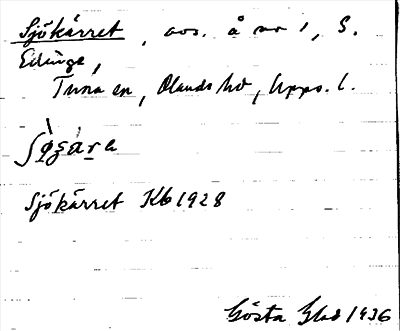 Sjökärret, avs. å nr 1, S.
Edinge,
Tuna sn, Olands hd, Upps. l.
Sjökärret Kb 1928
Gösta Glad 1936